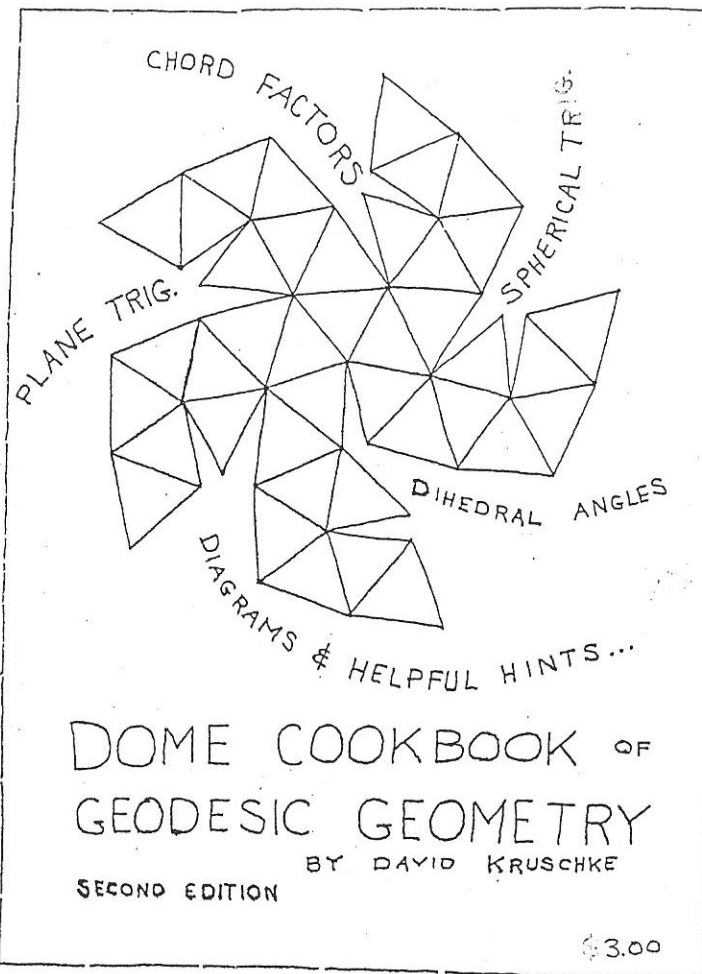 CHORD FACTORS
SPHERICAL TRIG.
PLANE TRIG.
DIHEDRAL ANGLES
DIAGRAMS & HELPFUL HINTS...
DOME COOKBOOK OF
GEODESIC GEOMETRY
BY DAVID KRUSCHKE
SECOND EDITION
$3.00